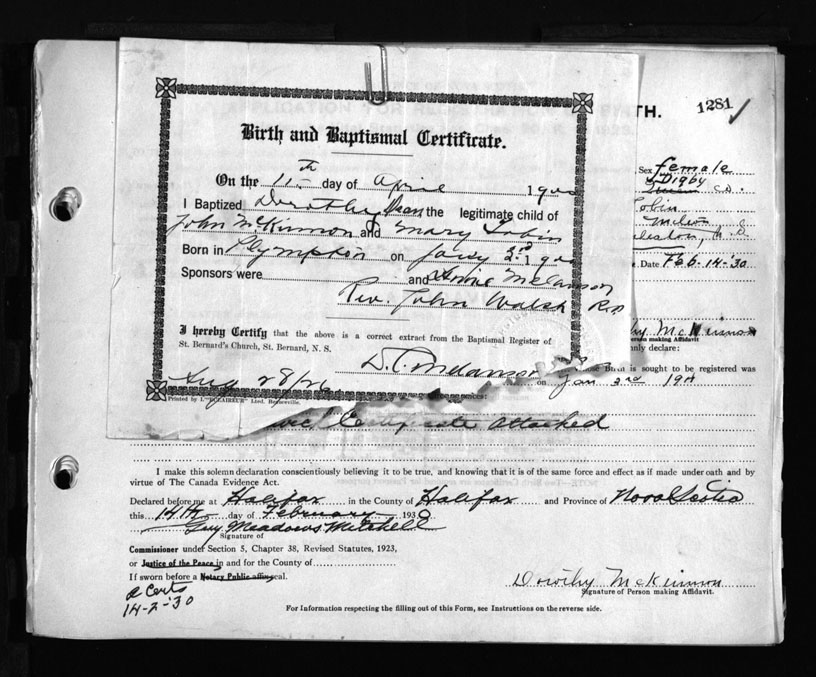 1281
TH.
Birth and Baptismal Certificate.
On the 11th day of April 19
I Baptized Dorothy the legitimate child of
John McKinnon and Mary Tobin
Born in Plympton on 19
Sponsors were and Annie Melanson
Rev. John Walsh
I hereby Certify that the above is a correct extract from the Baptismal Register of
St. Bernard's Church, St. Bernard, N. S.
Aug 28/26
Sex female
Digby co.
Tobin
N.S
Date Feb. 14-'30
McKinnon
erson making Affidavit
nly declare:
Birth is sought to be registered was
on Jan 3rd 19
Certificate attached
I make this solemn declaration conscientiously believing it to be true, and knowing that it is of the same force and effect as if made under oath and by
virtue of The Canada Evidence Act.
Declared before me at Halifax in the County of Halifax and Province of Nova Scotia
this 14th day of February 1930
Guy Meadows Mitchell
Signature of
Commissioner under Section 5, Chapter 38, Revised Statutes, 1923,
or Justice of the Peace in and for the County of
If sworn before a Notary Public affix seal.
Certs
14-2-'30
Dorothy McKinnon
Signature of Person making Affidavit.
For Information respecting the filling out of this Form, see Instructions on the reverse side.